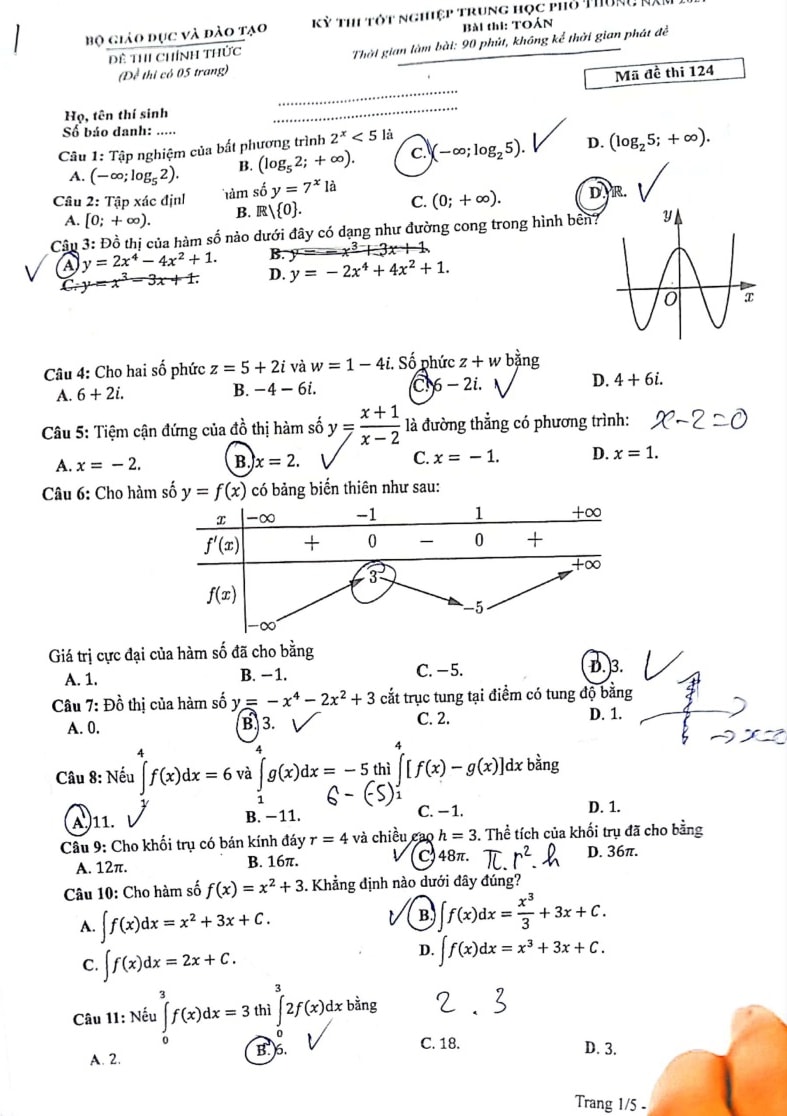 BỘ GIÁO DỤC VÀ ĐÀO TẠO
ĐỀ THI CHÍNH THỨC
(Đề thi có 05 trang)
KỲ THI TỐT NGHIỆP TRUNG HỌC PHỔ THÔNG NĂM
Bài thi: TOÁN
Thời gian làm bài: 90 phút, không kể thời gian phát đề
Mã đề thi 124
Họ, tên thí sinh
Số báo danh: .....
Câu 1: Tập nghiệm của bất phương trình 2^x < 5 là
A. (−∞; log_5 2). B. (log_5 2; +∞). C. (−∞; log_2 5). D. (log_2 5; +∞).
Câu 2: Tập xác định hàm số y = 7^x là
A. [0; +∞). B. ℝ\{0}. C. (0; +∞). D. ℝ.
Câu 3: Đồ thị của hàm số nào dưới đây có dạng như đường cong trong hình bên?
A. y = 2x^4 − 4x^2 + 1. B. y = −x^3 + 3x + 1.
C. y = x^3 − 3x + 1. D. y = −2x^4 + 4x^2 + 1.
y
O
x
Câu 4: Cho hai số phức z = 5 + 2i và w = 1 − 4i. Số phức z + w bằng
A. 6 + 2i. B. −4 − 6i. C. 6 − 2i. D. 4 + 6i.
Câu 5: Tiệm cận đứng của đồ thị hàm số y = (x+1)/(x−2) là đường thẳng có phương trình: x−2=0
A. x = −2. B. x = 2. C. x = −1. D. x = 1.
Câu 6: Cho hàm số y = f(x) có bảng biến thiên như sau:
x −∞ −1 1 +∞
f′(x) + 0 − 0 +
f(x) −∞ 3 −5 +∞
Giá trị cực đại của hàm số đã cho bằng
A. 1. B. −1. C. −5. D. 3.
Câu 7: Đồ thị của hàm số y = −x^4 − 2x^2 + 3 cắt trục tung tại điểm có tung độ bằng
A. 0. B. 3. C. 2. D. 1.
→ x=0
Câu 8: Nếu ∫_1^4 f(x)dx = 6 và ∫_1^4 g(x)dx = −5 thì ∫_1^4 [f(x) − g(x)]dx bằng
6 − (−5)
A. 11. B. −11. C. −1. D. 1.
Câu 9: Cho khối trụ có bán kính đáy r = 4 và chiều cao h = 3. Thể tích của khối trụ đã cho bằng
A. 12π. B. 16π. C. 48π. π.r².h D. 36π.
Câu 10: Cho hàm số f(x) = x^2 + 3. Khẳng định nào dưới đây đúng?
A. ∫f(x)dx = x^2 + 3x + C. B. ∫f(x)dx = x^3/3 + 3x + C.
C. ∫f(x)dx = 2x + C. D. ∫f(x)dx = x^3 + 3x + C.
Câu 11: Nếu ∫_0^3 f(x)dx = 3 thì ∫_0^3 2f(x)dx bằng 2 . 3
A. 2. B. 6. C. 18. D. 3.
Trang 1/5 -